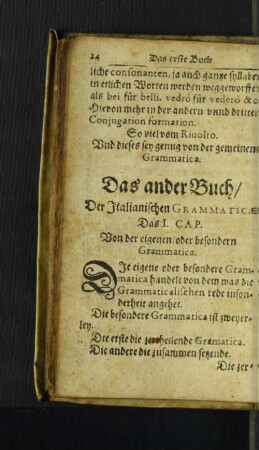 24 Das erste Buch
liche consonanten, ja auch gantze syllaben
in etlichen Worten werden weggeworffen
als bei für belli. vedrò für vederò &c.
Hievon mehr in der andern vnnd dritten
Conjugation formation.
So viel vom Rivolto.
Vnd dieses sey genug von der gemeinen
Grammatica.
Das ander Buch/
Der Italianischen GRAMMATICÆ
Das I. CAP.
Von der eigenen/oder besondern
Grammatica.
DJe eigene oder besondere Gram-
matica handelt von dem was die
Grammaticalischen rede inson-
derheit angehet.
Die besondere Grammatica ist zweyer-
ley.
Die erste die zertheilende Gramatica.
Die andere die zusammen setzende.
Die zer-